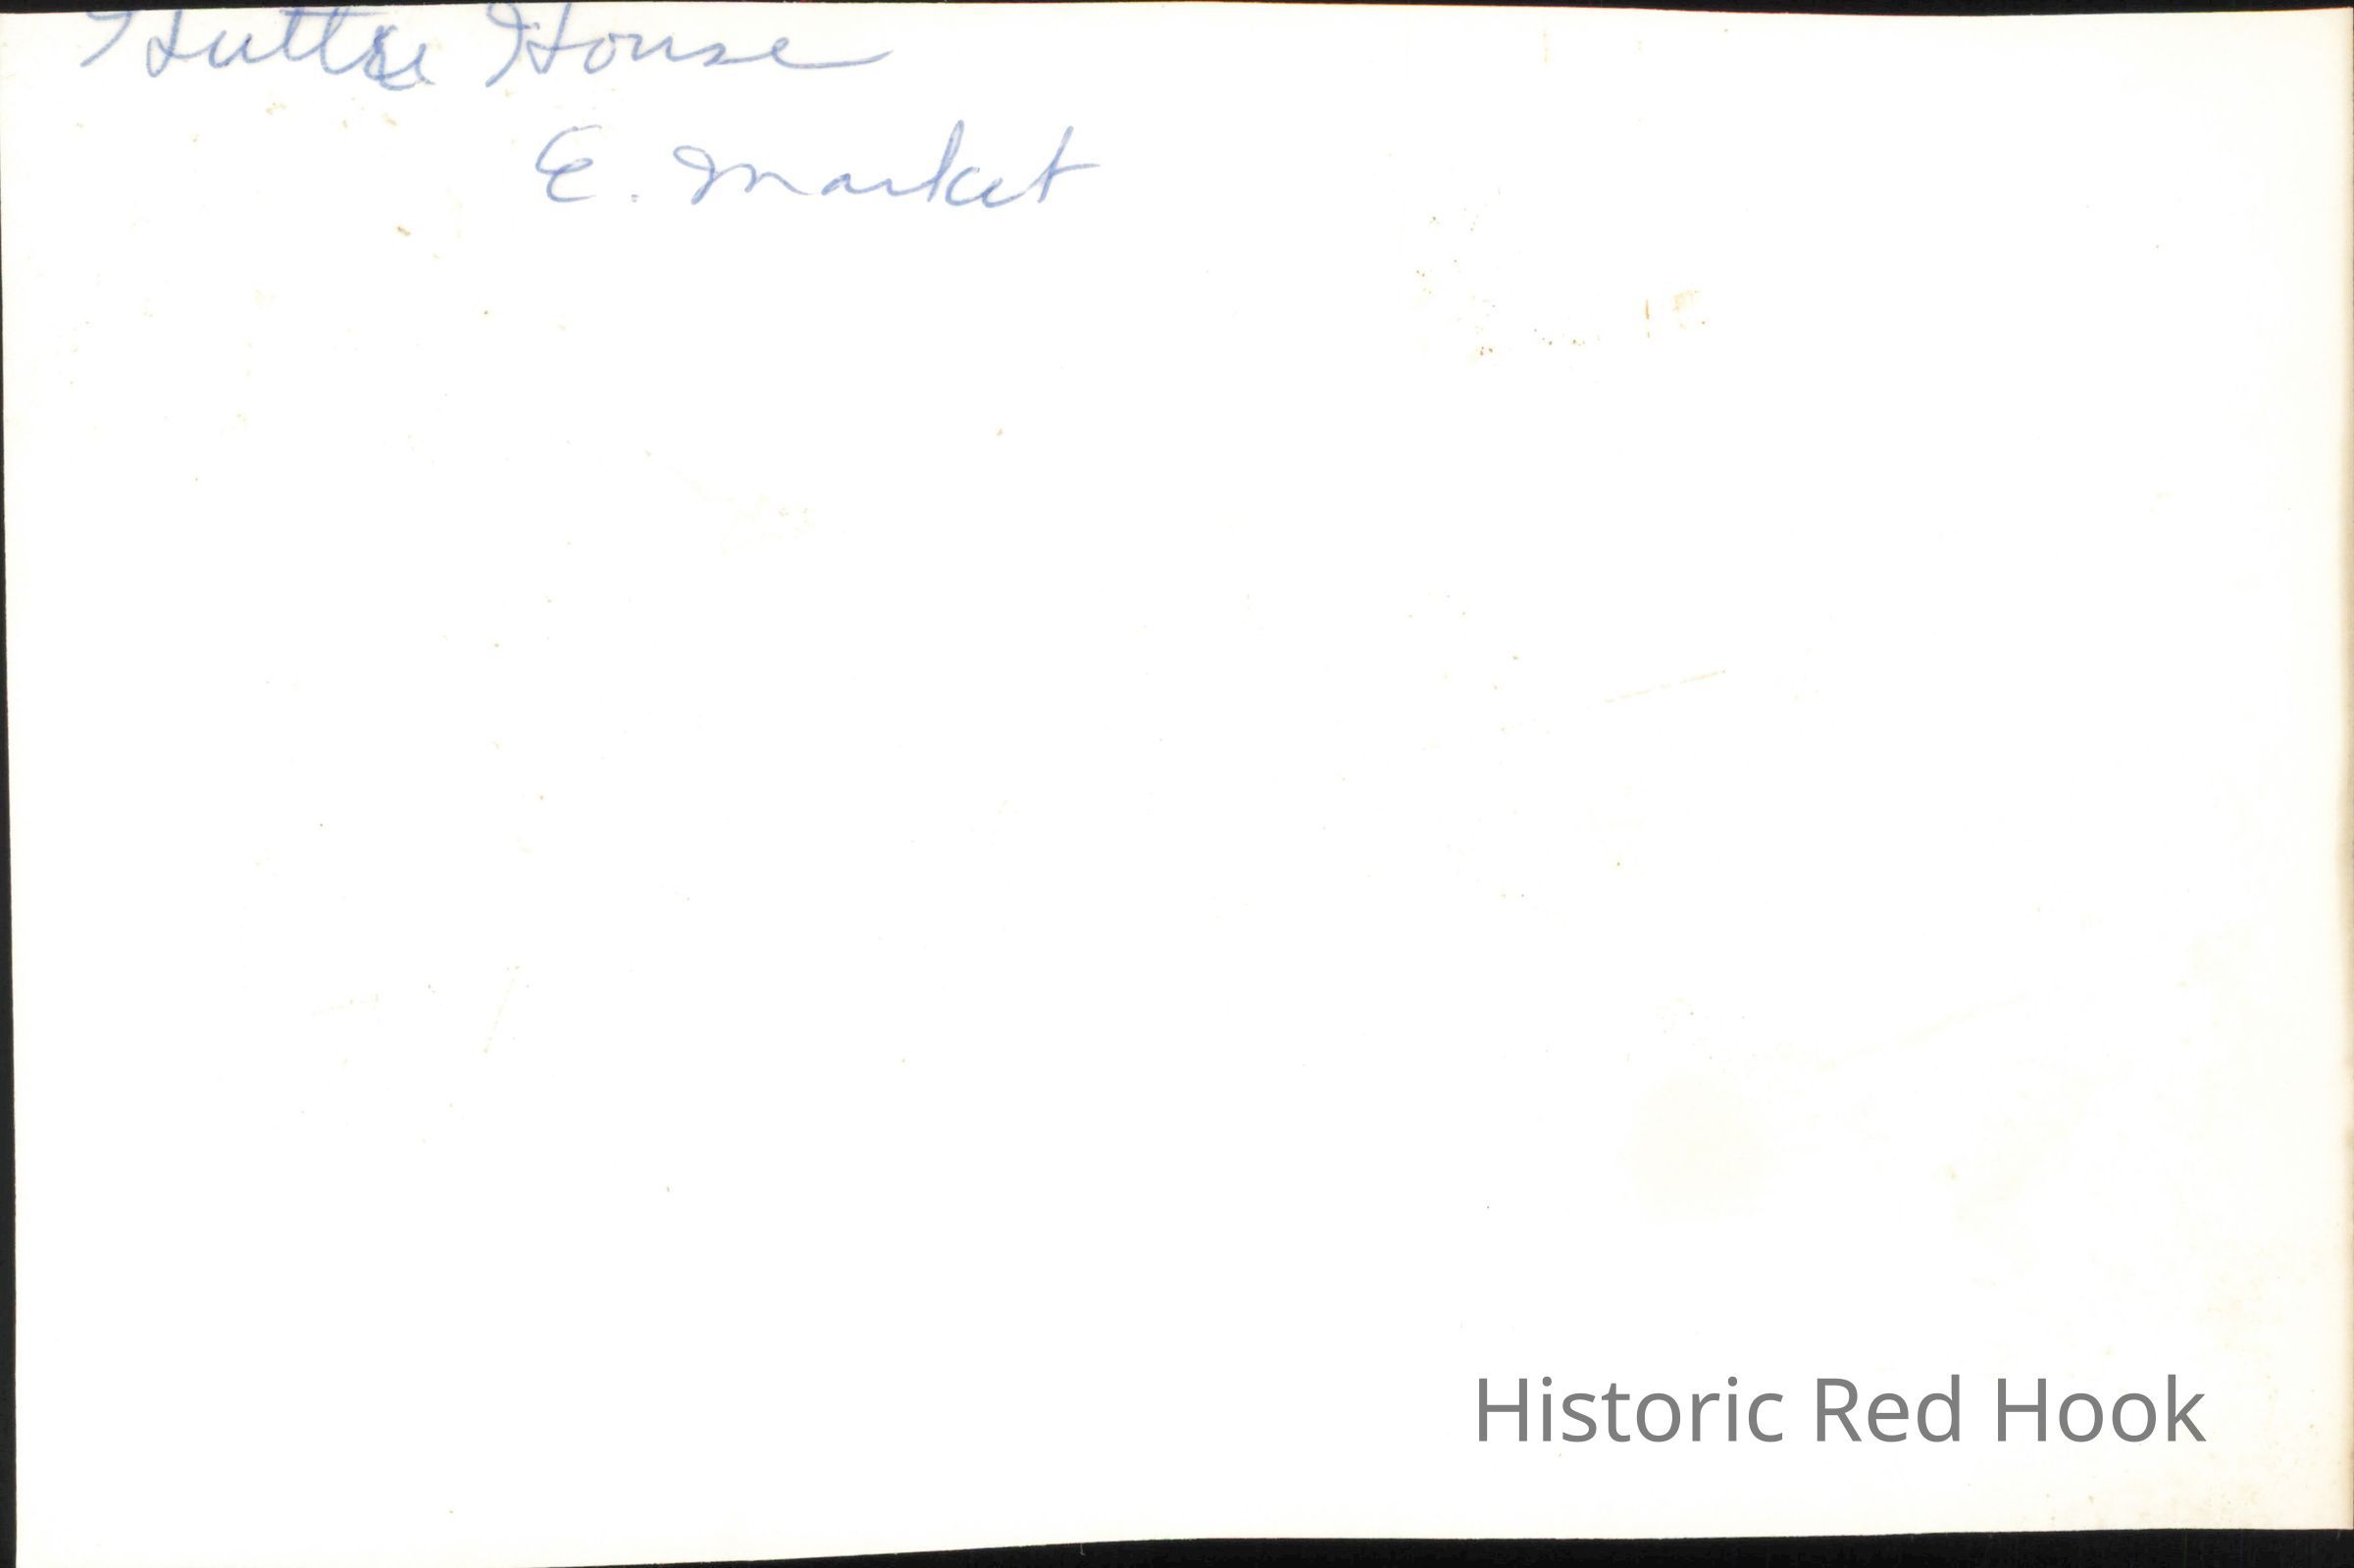 House
E. Market
Historic Red Hook